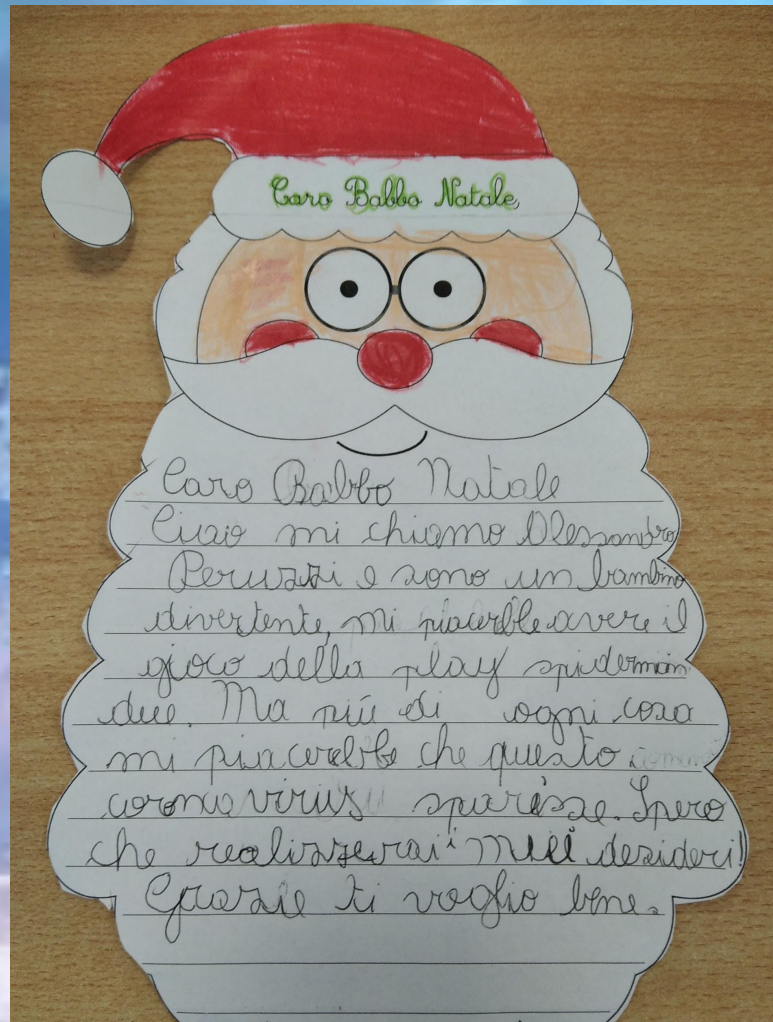 Caro Babbo Natale,
Caro Babbo Natale
Ciao mi chiamo Alessandro
Peruzzi e sono un bambino
divertente, mi piacerebble avere il
gioco della play spiderman
due. Ma più di ogni cosa
mi piacerebbe che questo
coronavirus sparisse. Spero
che realizzerai i miei desideri!
Grazie ti voglio bene.